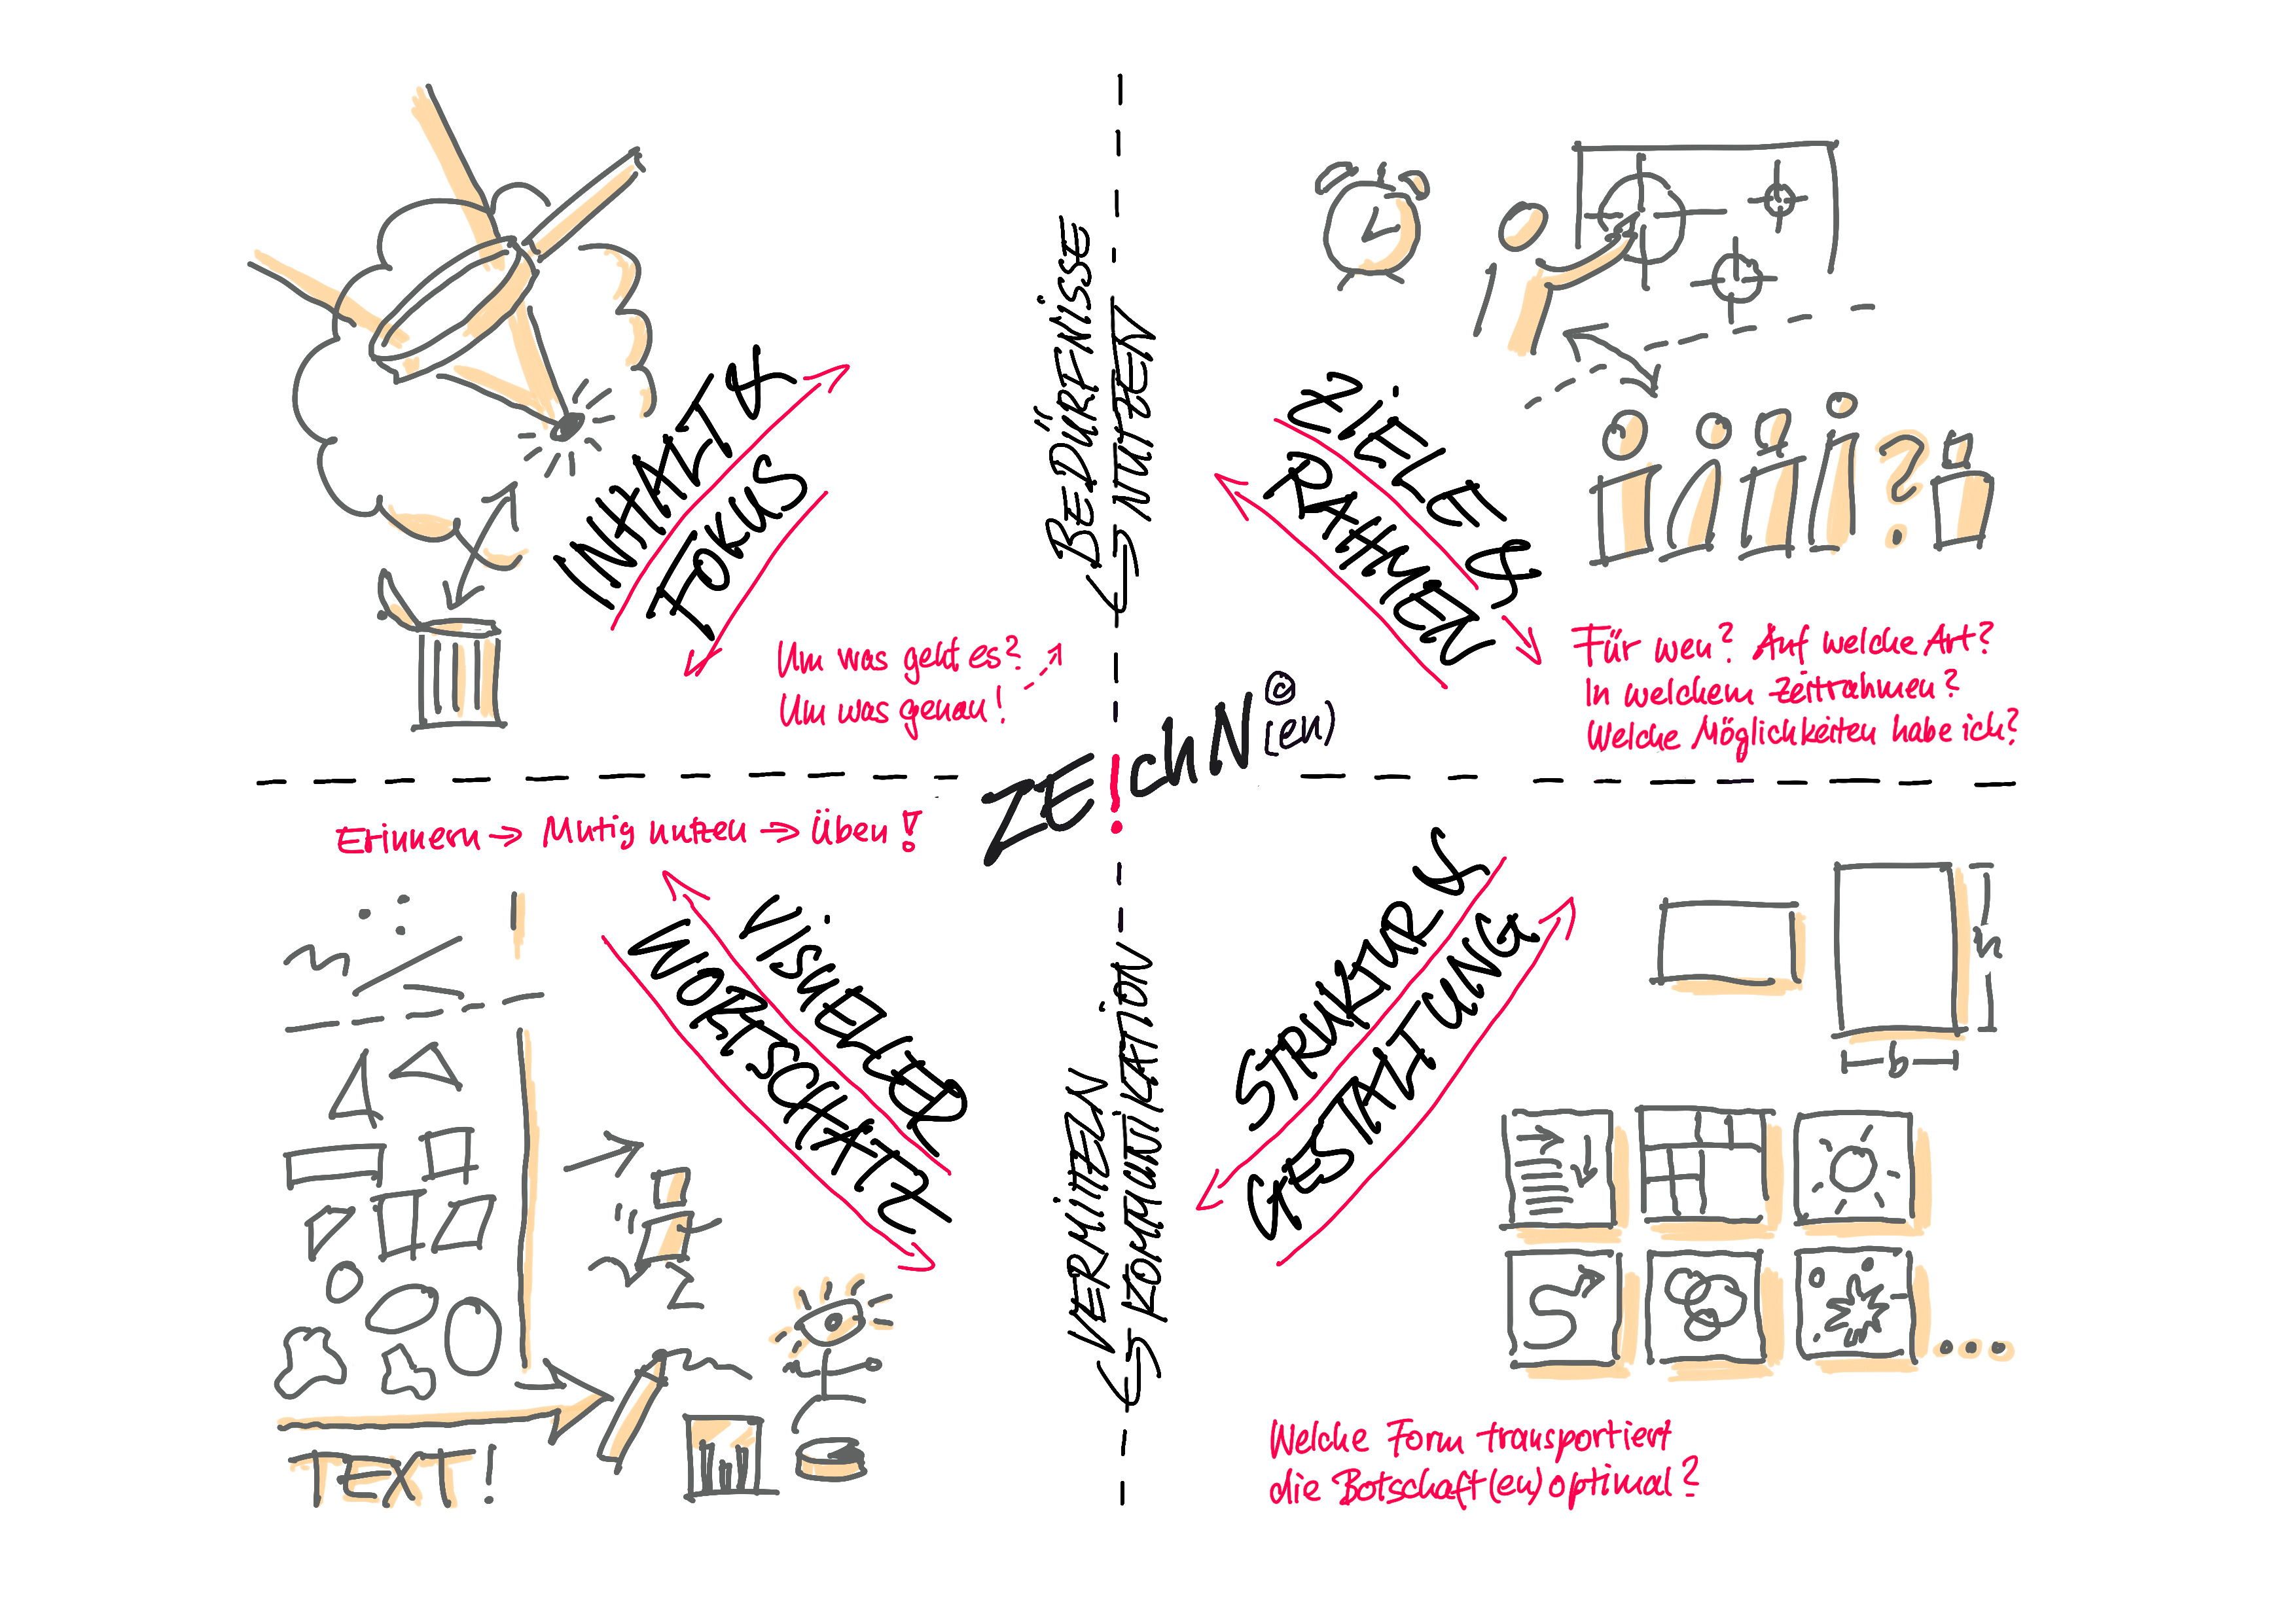 INHALT &
FOKUS
Um was geht es?
Um was genau!
BEDÜRFNISSE
NUTZEN
ZIELE &
RAHMEN
?
Für wen? Auf welche Art?
In welchem Zeitrahmen?
Welche Möglichkeiten habe ich?
ZE!chN©
(en)
Erinnern → Mutig nutzen → Üben!
VISUELLER
WORTSCHATZ
TEXT!
VERMITTELN
KOMMUNIKATION
STRUKTUR &
GESTALTUNG
h
b
...
Welche Form transportiert
die Botschaft(en) optimal?